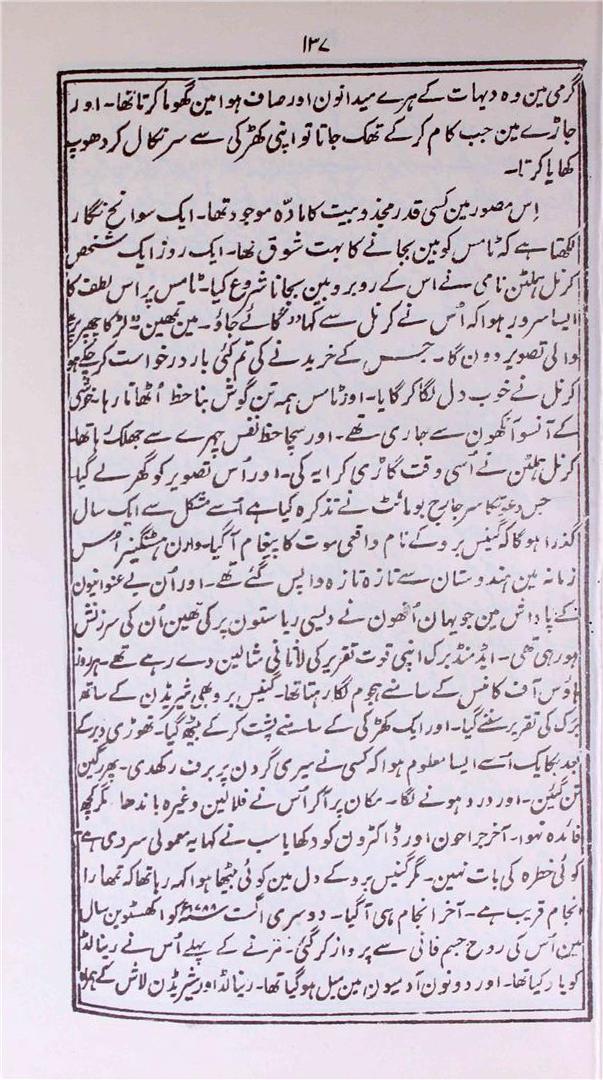 ۱۳۷
گرمی مین وہ دیہات کے ہرے میدانون اور صاف ہوا مین گھوما کرتا تھا۔ اور
جاڑے مین جب کام کرکے تھک جاتا تو اپنی کھڑکی سے سر نکال کر دھوپ
کھایا کرتا۔
اِس مصور مین کسی قدر مجذوبیت کا مادّہ موجود تھا۔ ایک سوانح نگار
لکھتا ہے کہ ٹامس کو بین بجانے کا بہت شوق تھا۔ ایک روز ایک شخص
کرنل ہلٹن نامی نے اس کے روبرو بین بجانا شروع کیا۔ ٹامس پر اس لطف کا
ایسا سرور ہوا کہ اُس نے کرنل سے کہا ’’بجائے جاؤ۔ مین تمھین ’’لڑکا چھپر پر‘‘
والی تصویر دون گا۔ جس کے خریدنے کی تم کئی بار درخواست کر چکے ہو
کرنل نے خوب دل لگا کر گایا۔ اور ٹامس ہمہ تن گوش بنا حظ اُٹھاتا رہا۔ خوشی
کے آنسو آنکھون سے جاری تھے۔ اور سچا حظ نفس چہرے سے جھلک رہا تھا۔
کرنل ہلٹن نے اُسی وقت گاڑی کرایہ کی۔ اور اُس تصویر کو گھر لے گیا۔
جس دعوت کا سر جارج بومانٹ نے تذکرہ کیا ہے اُسے مشکل سے ایک سال
گذرا ہوگا کہ گینس برو کے نام واقعی موت کا پیغام آ گیا۔ وارن ہسٹنگیز اُس
زمانہ مین ہندوستان سے تازہ تازہ واپس گئے تھے۔ اور اُن بے عنوانیون
کے پاداش مین جو یہان اُنھون نے دیسی ریاستون پر کی تھین اُن کی سرزنش
ہو رہی تھی۔ ایڈمنڈ برک اپنی قوت تقریر کی لاثانی مثالین دے رہے تھے۔ ہر روز
ہاؤس آف کامنس کے سامنے ہجوم لگا رہتا تھا۔ گینس برو بھی شیریڈن کے ساتھ
برک کی تقریر سننے گیا۔ اور ایک کھڑکی کے سامنے پشت کرکے بیٹھ گیا۔ تھوڑی دیر کے
بعد یکایک اُسے ایسا معلوم ہوا کہ کسی نے میری گردن پر برف رکھدی۔ پھر رگین
تن گئین۔ اور درد ہونے لگا۔ مکان پر آ کر اُس نے فلالین وغیرہ باندھا مگر کچھ
فائدہ نہوا۔ آخر جراحون اور ڈاکٹرون کو دکھایا سب نے کہا یہ معمولی سردی ہے
کوئی خطرہ کی بات نہین۔ مگر گینس برو کے دل مین کوئی بیٹھا ہوا کہہ رہا تھا کہ تمھارا
انجام قریب ہے۔ آخر انجام ہی آ گیا۔ دوسری اگست سنہ ۱۷۸۸ء کو اکسٹوین سال
مین اُس کی روح جسم فانی سے پرواز کر گئی۔ مرنے کے پہلے اُس نے رینالڈ
کو یاد کیا تھا۔ اور دونون آدمیون مین میل ہو گیا تھا۔ رینالڈ اور شیریڈن لاش کے ہمراہ